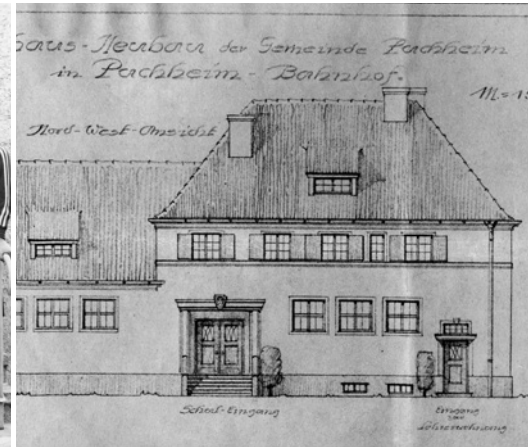 haus-Neubau der Gemeinde Parkheim
in Parkheim-Bahnhof.
M=1:
Nord-West-Ansicht
Schul-Eingang
Eingang
zur
Lehrerwohnung